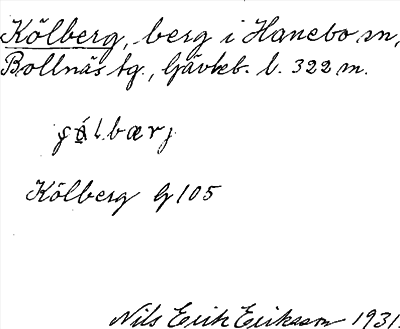 Kölberg, berg i Hanebo sn,
Bollnäs tg., Gävleb. l. 322 m.
Kölberg G 105
Nils Erik Eriksson 1931.